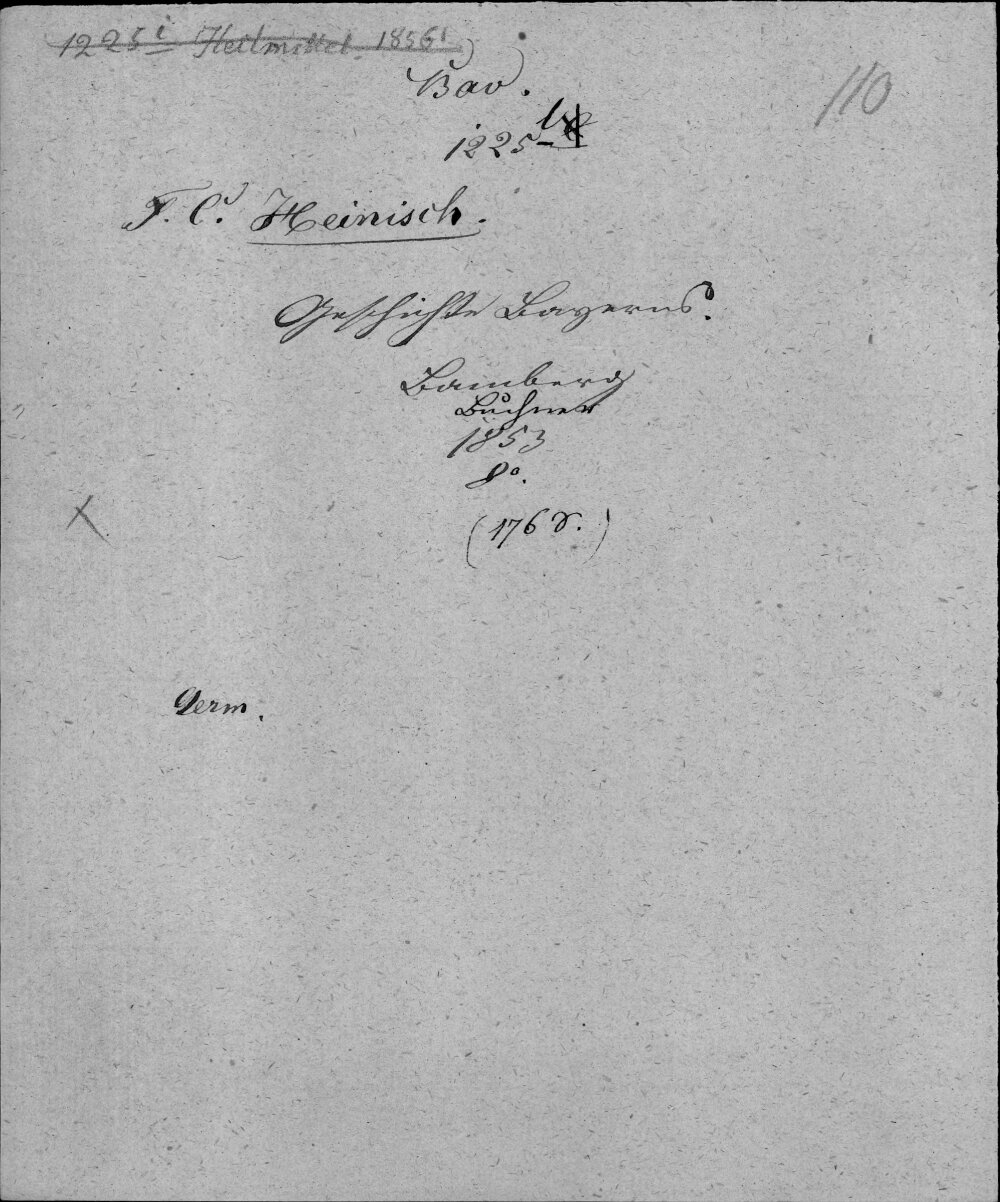 1225 i Heilmittel 1856
110
Bav.
1225
F. C. Heinisch.
Geschichte Bayerns.
Bamberg
Buchner
1853
8°.
(176 S.)
Germ.